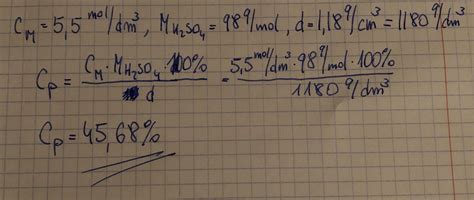 C_M = 5,5 mol/dm³, M_H₂SO₄ = 98 g/mol, d = 1,18 g/cm³ = 1180 g/dm³
C_p = C_M · M_H₂SO₄ · 100% / d = 5,5 mol/dm³ · 98 g/mol · 100% / 1180 g/dm³
C_p = 45,68%